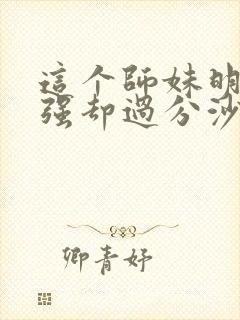 這个師妹明
强却過分沙
卿青妤